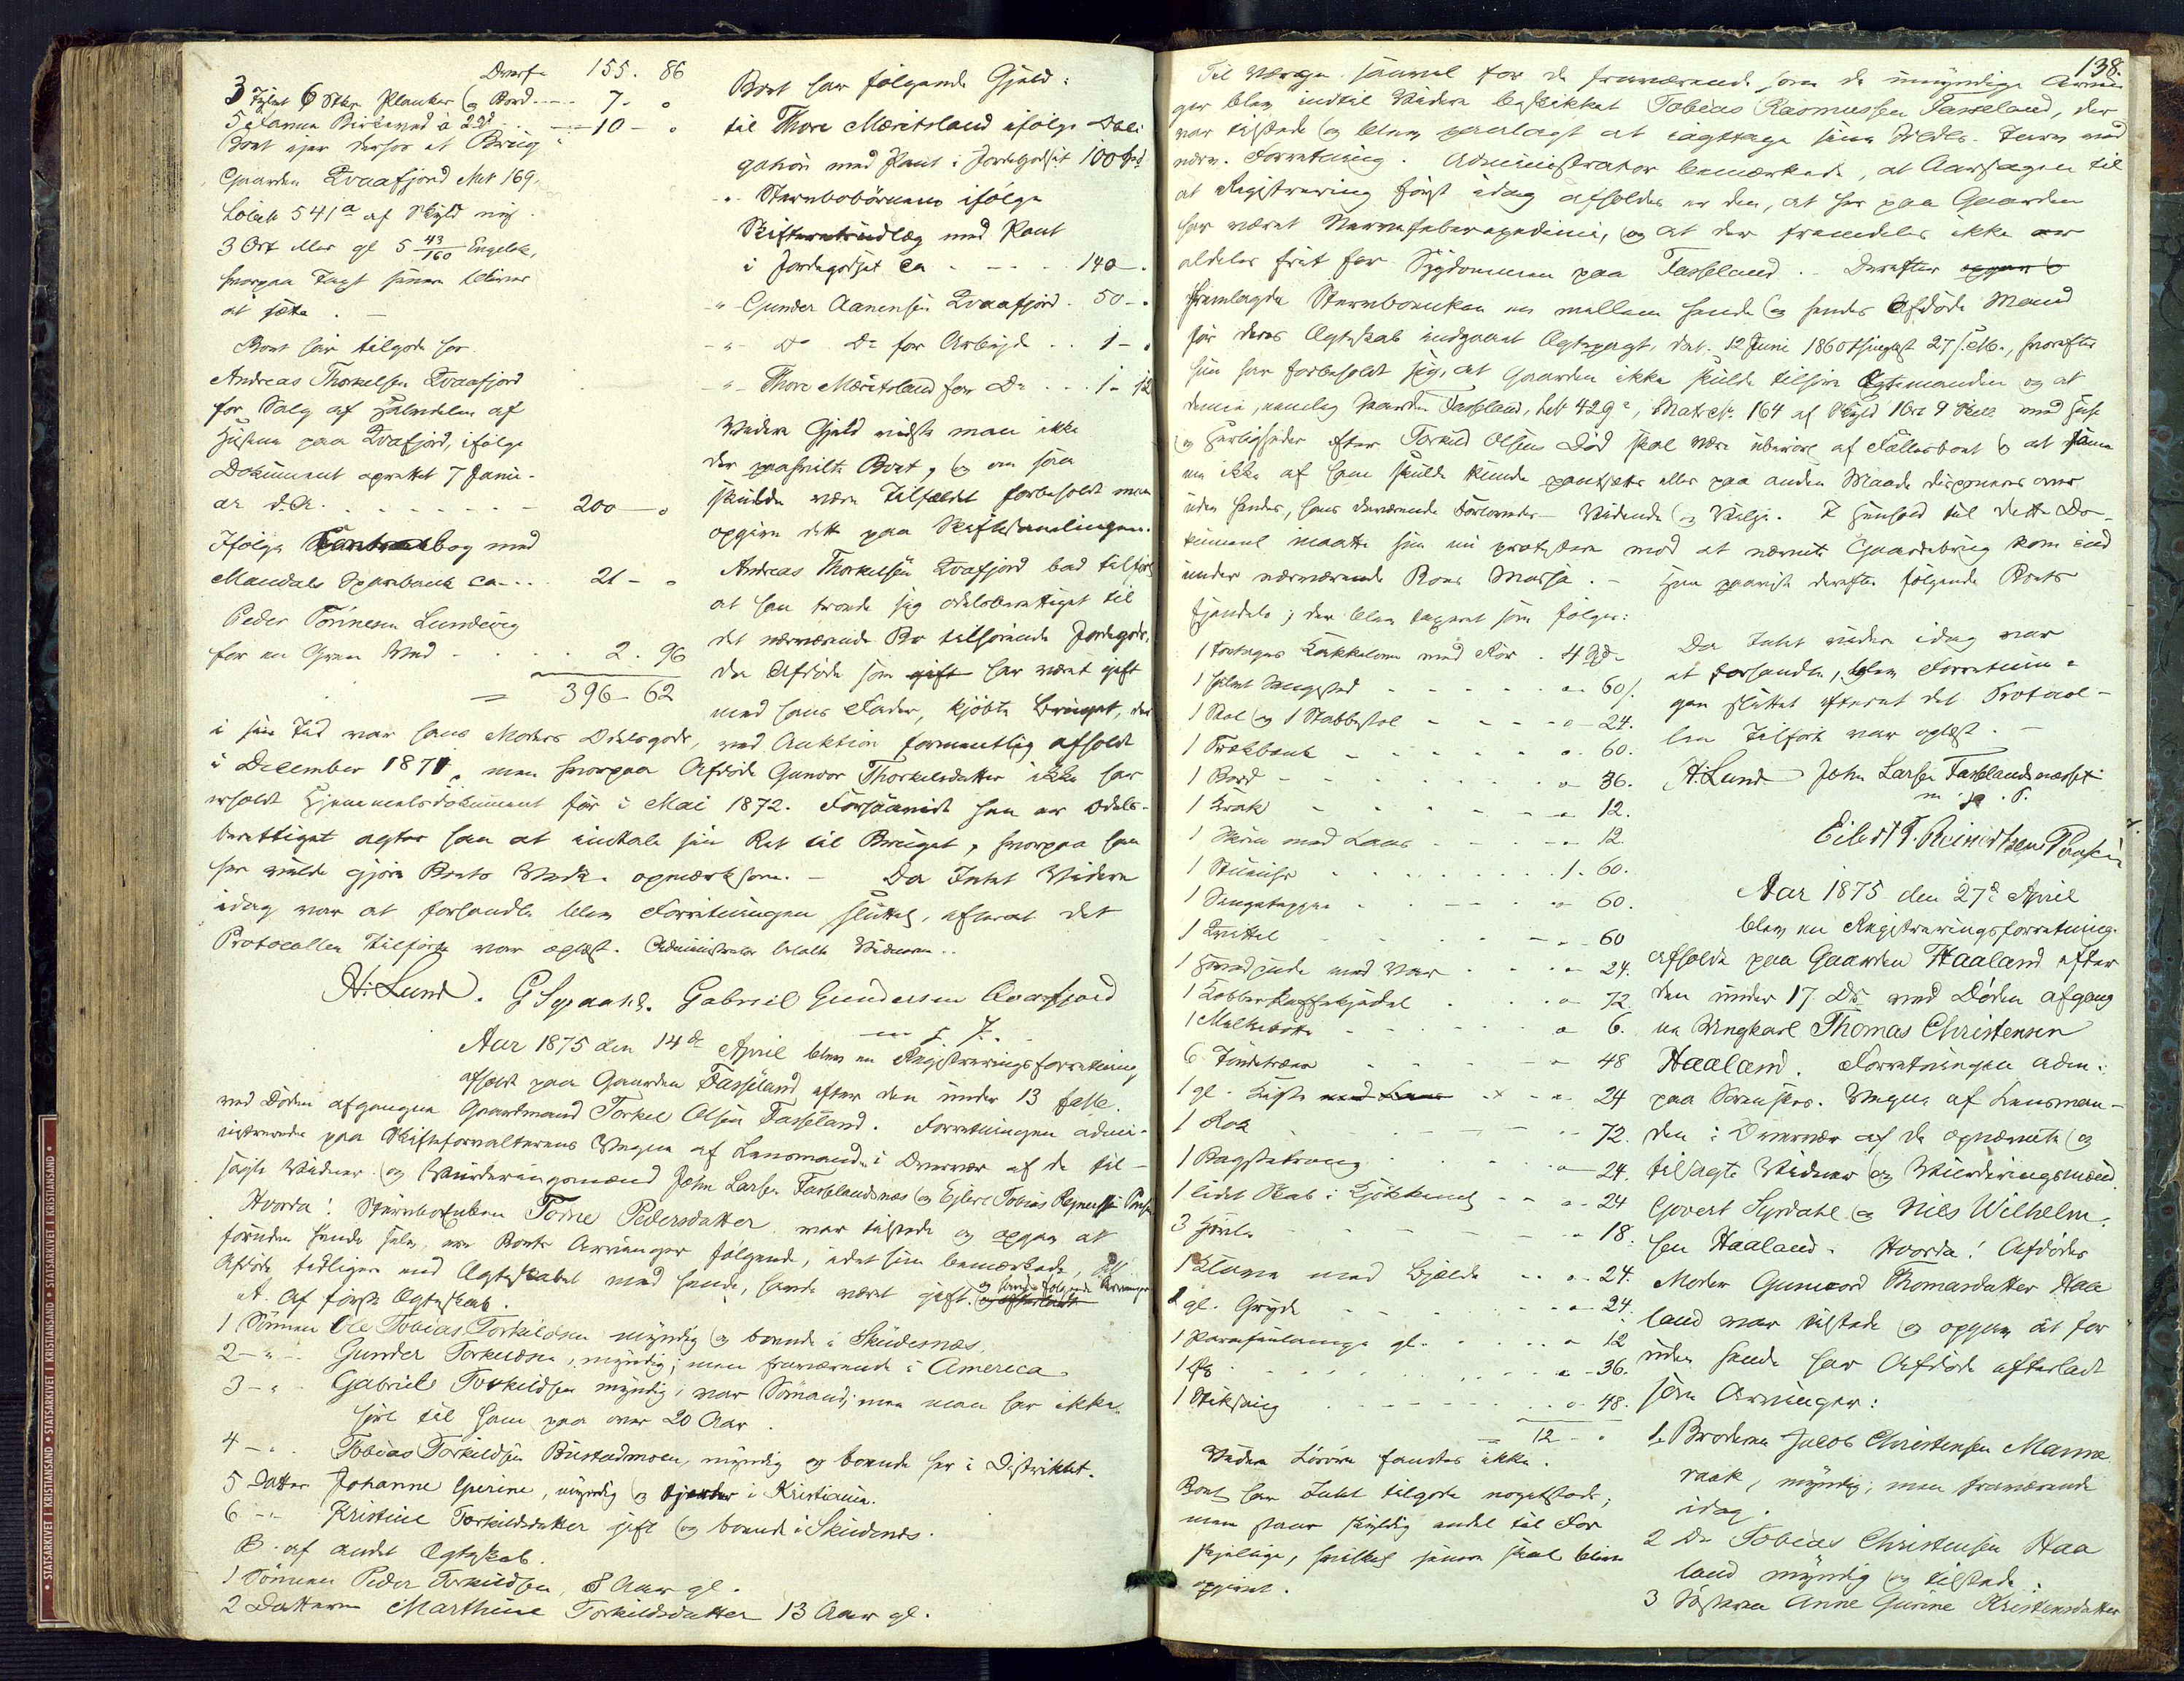 Overf. 155. 86
3 Tylvt 6 Stkr Planker og Bord 7 - "
5 Favne Birkeved à 2Sd 10 - "
Boet ejer derhos et Brug i
Gaarden Qvaafjord Mat 169,
Løbe№ 541a af Skyld ny
3 Ort eller gl 5 43/160 Engelsk,
hvorpaa Taxt senere bliver
at sætte. -
Boet har tilgode hos
Andreas Thorkelsen Qvaafjord
for Salg af Halvdelen af
Husene paa Qvafjord, ifølge
Dokument oprettet 7 Janu-
ar d.A. 200 - "
Ifølge bog med
Mandals Sparebank ca. 21 - "
Peder Tørresen Lundevig
for en Gran Ved 2. 96
= 396 - 62
Boet har følgende Gjæld:
til Thore Mæretsland ifølge Obli-
gation med Pant i Jordegodset 100 Spd
" Stervbobørnene ifølge
Skifteudlæg med Pant
i Jordegodset ca 140 - "
" Gunder Aanensen Qvaafjord 50 - "
" Do Do for Arbeide 1 - "
" Thore Mæretsland for Do 1 - 12
Videre Gjæld vidste man ikke
der paahvilte Boet, og om saa
skulde være Tilfældet forbeholdt man
opgive dette paa Skiftesamlingen.
Andreas Thorkelsen Qvafjord bad tilført
at han troede sig odelsberettiget til
det nærværende Bo tilhørende Jordegods,
da Afdøde som har været gift
med hans Fader, kjøbte Bruget, der
i sin Tid var hans Moders Odelsgods, ved Auktion formentlig afholdt
i December 1871, men hvorpaa Afdøde Gunvor Thorkelsdatter ikke har
erholdt Hjemmelsdokument før i Mai 1872. Forsaavidt han er Odels-
berettiget agter han at indtale sin Ret til Bruget, hvorpaa han
her vilde gjøre Boets Vedk. opmærksom. - Da Intet Videre
idag var at forhandle blev Forretningen sluttet, efterat det
Protocollen tilførte var oplæst. Administrator betalte Vidnerne..
H. Lund. G Syrdahl. Gabriel Gundersen Qvafjord
m. f. P.
Aar 1875 den 14de April blev en Registreringsforretning
afholdt paa Gaarden Fasseland efter den under 13 f.
ved Døden afgangne Gaardmand Torkel Olsen Fasseland. Forretningen admi-
nistreredes paa Skifteforvalterens Vegne af Lensmanden i Overvær af de til-
sagte Vidner og Vurderingsmænd John Larsen Fasselandsnæs og Eilert Tobias Reinertsen
Hvorda! Stervboenken Torne Pedersdatter var tilstede og opgav at
foruden hende selv, ere Boets Arvinger følgende, idet hun bemærkede,
Afdøde tidligere end Ægteskabet med hende, havde været gift og havde følgende Arvinger
A. Af første Ægteskab.
1 Sønnen Ole Tobias Torkildsen myndig og boende i Skudesnæs.
2 - " - Gunder Torkildsen, myndig; men fraværende i America
3 - " - Gabriel Torkildsen myndig, var Sømand; men man har ikke
hørt til ham paa over 20 Aar.
4 - " - Tobias Torkildsen Bustadmoen, myndig og boende her i Distriktet.
5 Datter Johanne Gurine, myndig og tjenende i Kristiania.
6 - " Kristine Torkildsdatter gift og boende i Skudenæs.
B. af andet Ægteskab.
1 Sønnen Peder Torkildsen, 8 Aar gl.
2 Datteren Marthine Torkildsdatter 13 Aar gl.
138.
Til Værge saavel for de fraværende som de umyndige Arvin-
ger blev indtil Videre beskikket Tobias Rasmussen Fasseland, der
var tilstede og blev paalagt at iagttage sine Pligter. Tarv ved
nærv. Forretning. Administrator bemærkede, at Aarsagen til
at Registrering først idag afholdes er den, at her paa Gaarden
har været Nervefeberepidemi, og at der fremdeles ikke er
aldeles frit for Sygdommen paa Fasseland. - Derefter
fremlagde Stervboenken en mellem hende og hendes Afdøde Mand
før deres Ægteskab indgaaet Ægtepagt, dat. 12 Juni 1860 thinglæst 27 s.M., hvorefter
hun har forbeholdt sig, at Gaarden ikke skulde tilhøre Ægtemanden og at
denne, nemlig Gaarden Fasseland, Lb№ 429a, Matr.№ 164 af Skyld 1 Ort 9 Skill med Huse
og Herligheder efter Torkild Olsens Død skal være uberørt af Fællesboet & at samme
ei ikke af ham skulde kunde pantsættes eller paa anden Maade disponeres over
uden hendes, hans daværende Forlovedes Vidende og Vilje. I Henhold til dette Do-
kument maatte hun nu protestere mod at nævnte Gaardebrug kom ind
under nærværende Boes Masse. - Hun paaviste derefter følgende Boets
Ejendele; der blev taxeret som følger:
1 toetages Kakkelovn med Rør 4 Spd -
1 sengested " 60/.
1 Stol og 1 Stabbestol " 24.
1 Trækbænk " 60.
1 Bord " 36.
1 Krak " 12.
1 Skrin med Laas " 12.
1 Stueuhr 1. 60.
1 Sengeteppe " 60.
1 Qvittel " 60
1 Hovedpude med Var " 24.
1 Kobber Kaffekjedel " 72
1 Melkebøtte " 6.
6. Tønde " 48
1 gl. Kiste " 24
1 Rok " 72.
1 Bagstetraug " 24.
1 lidet Skab i Kjøkkenet " 24
3 " 18.
1 Klave med Bjælde " 24.
1 gl. Gryde " 24.
1 Parafinlampe gl. " 12
1 " 36.
1 " 48.
= 12 - "
Videre Løsøre fandtes ikke.
Boet har Intet tilgode nogetsteds;
men staar skyldig endel til For
skjellige, hvilket senere skal blive
opgivet.
Da Intet videre idag var
at forhandle, blev Forretnin-
gen sluttet efterat det Protocol-
len Tilførte var oplæst. -
H. Lund John Larsen Fasselandsnæsset
m. p. P.
Eilert T. Reinertsen
Aar 1875 den 27de April
blev en Registreringsforretning
afholdt paa Gaarden Haaland efter
den under 17. Ds. ved Døden afgang
ne Ungkarl Thomas Christensen
Haaland. Forretningen adm.
paa Sorenskr. Vegne af Lensman-
den i Overvær af de opnævnte og
tilsagte Vidner og Vurderingsmænd
Govert Syrdahl og Niels Wilhelm-
sen Haaland. Hvorda! Afdødes
Moder Gunvord Thomasdatter Haa
land var tilstede og opgav at for
uden hende har Afdøde efterladt
som Arvinger:
1. Broderen Jacob Christensen Manne
raak, myndig; men fraværende
idag.
2 Do Tobias Christensen Haa
land myndig og tilstede.
3 Søsteren Anne Gurine Kristensdatter
• STATSARKIVET I KRISTIANSAND • STATSARKIVET I KRISTIANSAND • STATSARKIVET I KRISTIANSAND •